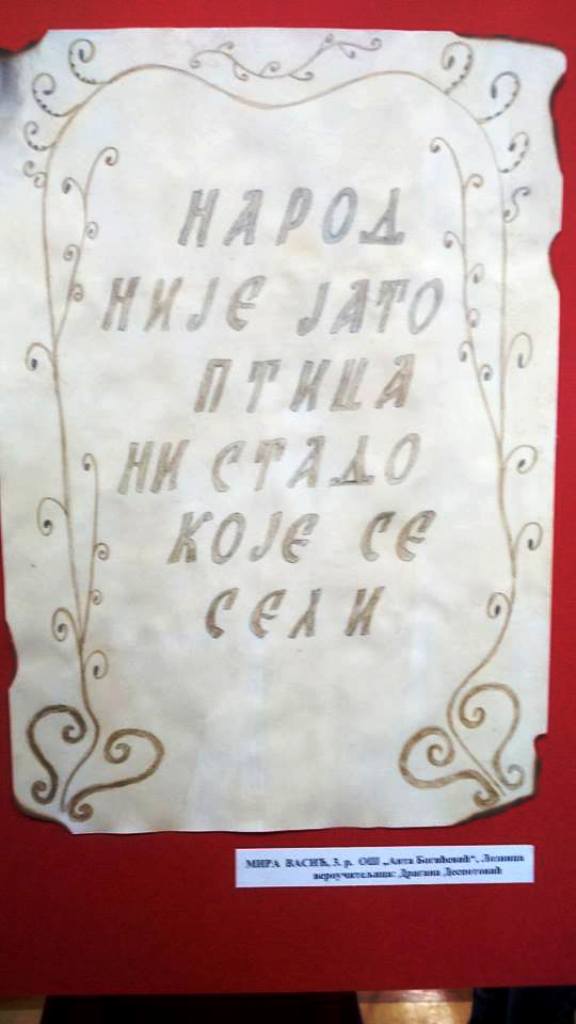 НАРОД
НИЈЕ ЈАТО
ПТИЦА
НИ СТАДО
КОЈЕ СЕ
СЕЛИ
МИРА ВАСИЋ, 3. р. ОШ „Анта Богићевић“, Лозница
вероучитељица: Драгана Деспотовић